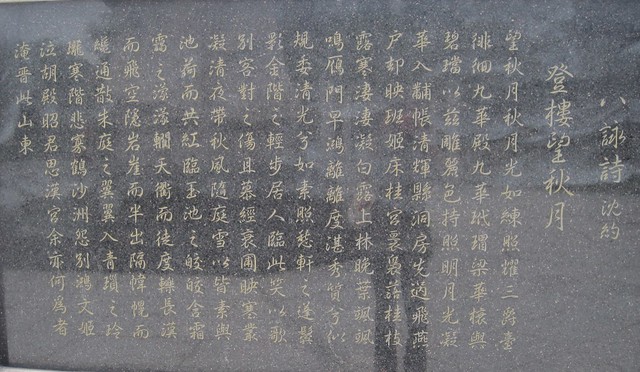 八詠詩 沈約
登樓望秋月
望秋月秋月光如練照耀三爵臺
徘徊九華殿九華玳瑁梁華榱與
碧璫以茲雕麗色持照明月光凝
華入黼帳清輝縣洞房先過飛燕
戶却映班姬床桂宮裊裊落桂枝
露寒淒淒凝白露上林晚葉颯颯
鳴雁門早鴻離離度湛秀質兮似
規委清光兮如素照愁軒之蓬鬢
影金階之輕步居人臨此笑以歌
別客對之傷且慕經衰圃映寒叢
凝清夜帶秋風隨庭雪以皆素與
池荷而共紅臨玉池之皎皎含霜
靄之濛濛轥天衢而徒度轢長漢
而飛空隱岩崖而半出隔幃幌而
纔通散朱庭之翼翼入青瑣之玲
瓏寒階悲寡鶴沙洲怨別鴻文姬
泣胡殿昭君思漢宮余亦何為者
淹留此山東